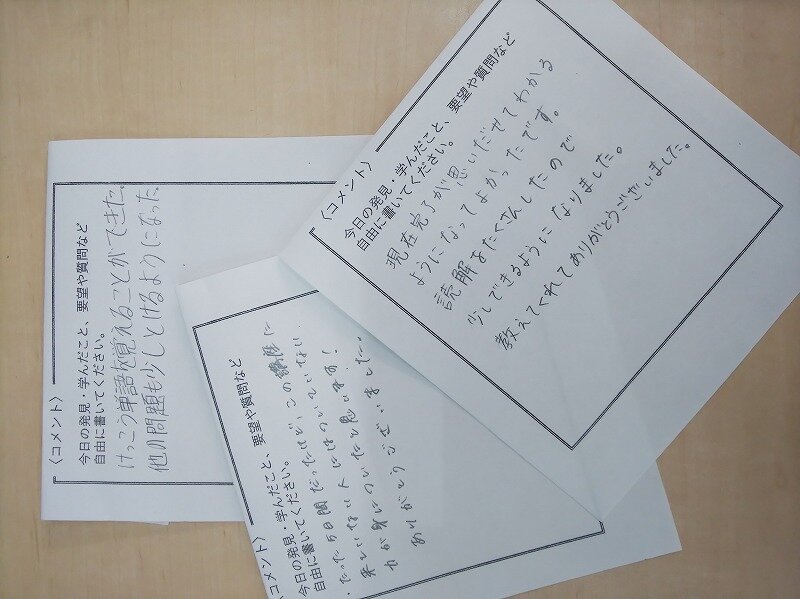 〈コメント〉
今日の発見・学んだこと、要望や質問など
自由に書いてください。
けっこう単語を覚えることができた。
他の問題も少しとけるようになった。
〈コメント〉
今日の発見・学んだこと、要望や質問など
自由に書いてください。
たった5日間だったけど、この
来ていない人にはついていない
力が身についたと思います!
ありがとうございました。
〈コメント〉
今日の発見・学んだこと、要望や質問など
自由に書いてください。
現在完了が思いだせてわかる
ようになってよかったです。
読解をたくさんしたので
少しできるようになりました。
教えてくれてありがとうございました。